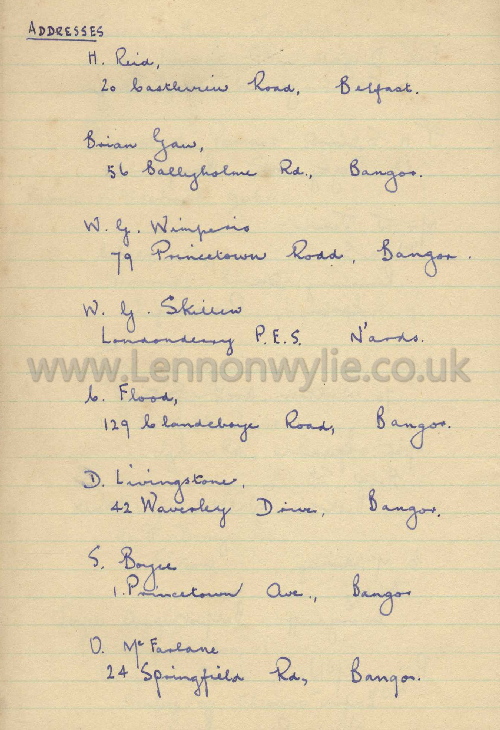 ADDRESSES
H. Reid,
20 Castleview Road, Belfast.
Brian Gaw,
56 Ballyholme Rd., Bangor.
W. G. Wimperis
79 Princetown Rodd, Bangor.
W. G. Skillen
Londonderry P.E.S. N'ards.
www.Lennonwylie.co.uk
C. Flood,
129 Clandeboye Road, Bangor.
D. Livingstone,
42 Waverley Drive, Bangor.
S. Boyce
1. Princetown Ave., Bangor
D. McFarlane
24 Springfield Rd, Bangor.